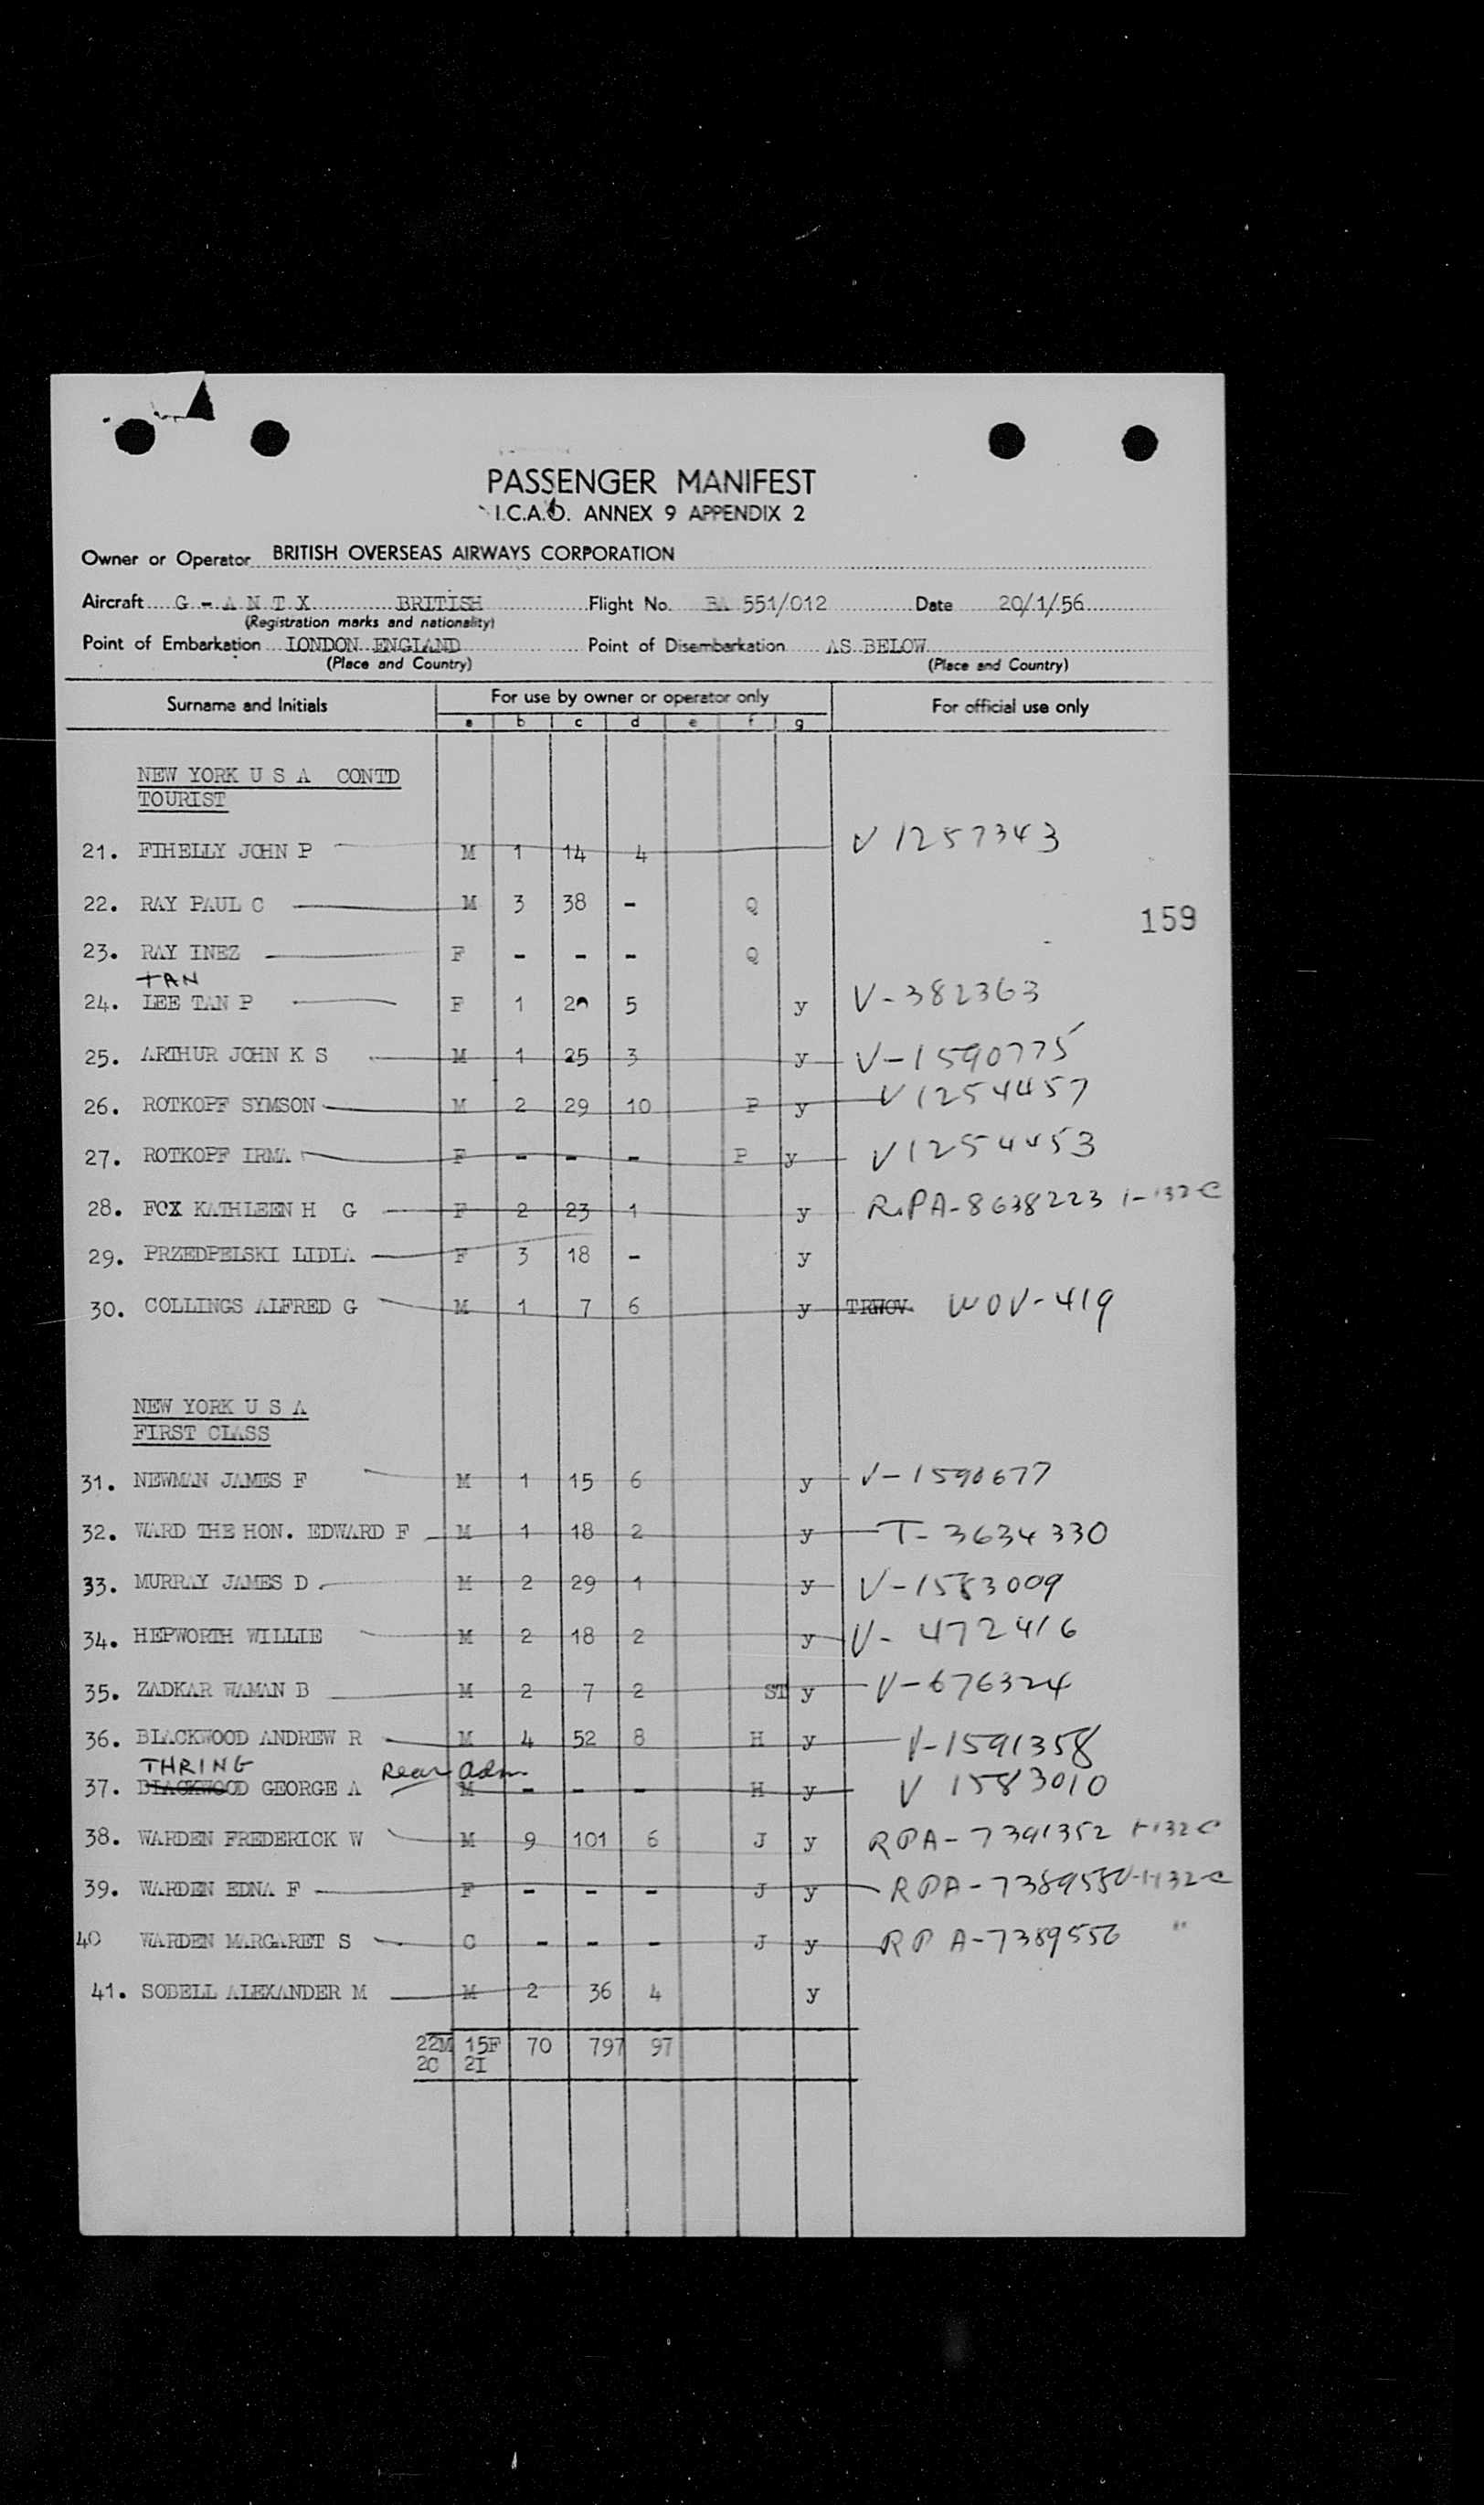 PASSENGER MANIFEST
I.C.A.O. ANNEX 9 APPENDIX 2
Owner or Operator BRITISH OVERSEAS AIRWAYS CORPORATION
Aircraft G - A N T X BRITISH Flight No. BA 551/012 Date 20/1/56
(Registration marks and nationality)
Point of Embarkation LONDON ENGLAND Point of Disembarkation AS BELOW
(Place and Country) (Place and Country)
Surname and Initials For use by owner or operator only For official use only
a b c d e f g
NEW YORK U S A CONTD
TOURIST
21. FIHELLY JOHN P M 1 14 4 V 1257343
22. RAY PAUL C M 3 38 - Q
159
23. RAY INEZ F - - - Q
TAN
24. LEE TAN P F 1 20 5 y V-382363
25. ARTHUR JOHN K S M 1 25 3 y V-1590775
26. ROTKOPF SYMSON M 2 29 10 P y V1254457
27. ROTKOPF IRMA F - - - P y V1254453
28. FOX KATHLEEN H G F 2 23 1 y R.PA-8638223 1-132C
29. PRZEDPELSKI LIDIA F 3 18 - y
30. COLLINGS ALFRED G M 1 7 6 y TRWOV WOV-419
NEW YORK U S A
FIRST CLASS
31. NEWMAN JAMES F M 1 15 6 y V-1590677
32. WARD THE HON. EDWARD F M 1 18 2 y T-3634330
33. MURRAY JAMES D M 2 29 1 y V-1583009
34. HEPWORTH WILLIE M 2 18 2 y V-472416
35. ZADKAR WAMAN B M 2 7 2 ST y V-676324
36. BLACKWOOD ANDREW R M 4 52 8 H y V-1591358
THRING Rear Adm
37. BLACKWOOD GEORGE A M - - - H y V 1583010
38. WARDEN FREDERICK W M 9 101 6 J y RPA-7391352 1-132C
39. WARDEN EDNA F F - - - J y RPA-
40 WARDEN MARGARET S C - - - J y RPA-7389556 "
41. SOBELL ALEXANDER M M 2 36 4 y
22M 15F 70 797 97
2C 2I